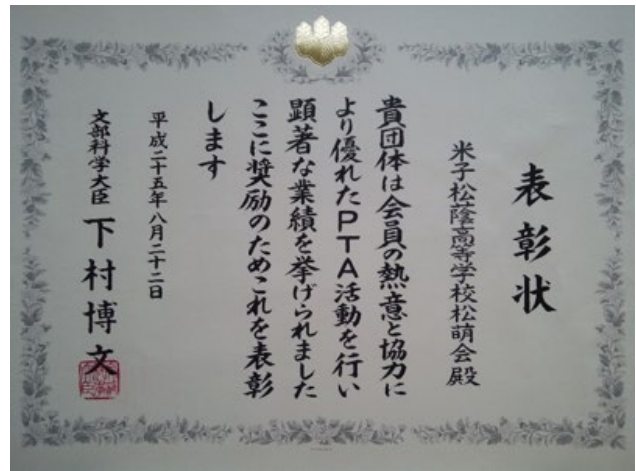 表彰状
米子松蔭高等学校松萌会殿
貴団体は会員の熱意と協力に
より優れたPTA活動を行い
顕著な業績を挙げられました
ここに奨励のためこれを表彰
します
平成二十五年八月二十二日
文部科学大臣 下村博文